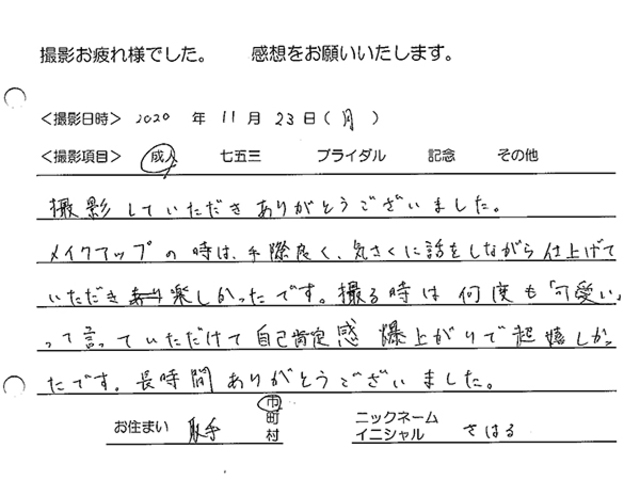 撮影お疲れ様でした。 感想をお願いいたします。
＜撮影日時＞ 2020 年 11 月 23 日 ( 月 )
＜撮影項目＞ 成人 七五三 ブライダル 記念 その他
撮影していただきありがとうございました。
メイクアップの時は、手際良く、気さくに話をしながら仕上げて
いただき楽しかったです。撮る時は何度も「可愛い」
って言っていただけて自己肯定感 爆上がりで超嬉しかっ
たです。長時間ありがとうございました。
お住まい 取手 市 町 村
ニックネーム イニシャル さはる